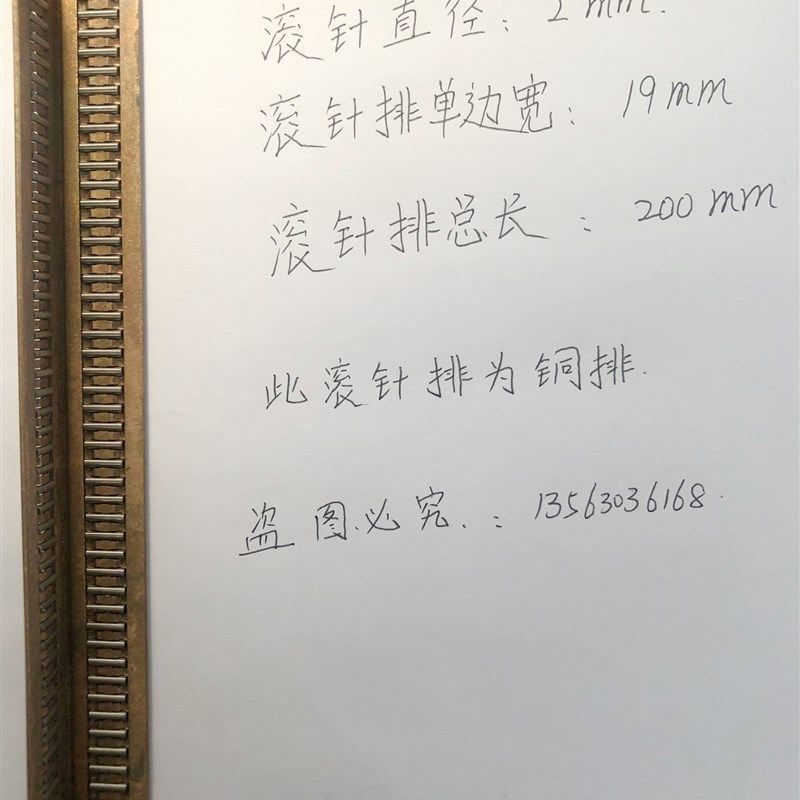 滚针直径：2mm.
滚针排单边宽：19mm
滚针排总长：200mm
此滚针排为铜排.
盗图必究.：13563036168.